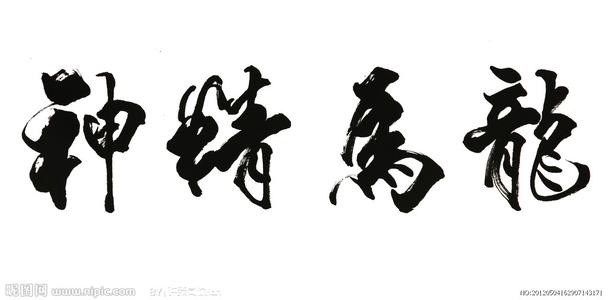 龍馬精神
昵图网 www.nipic.com
NO:20120504162907143171